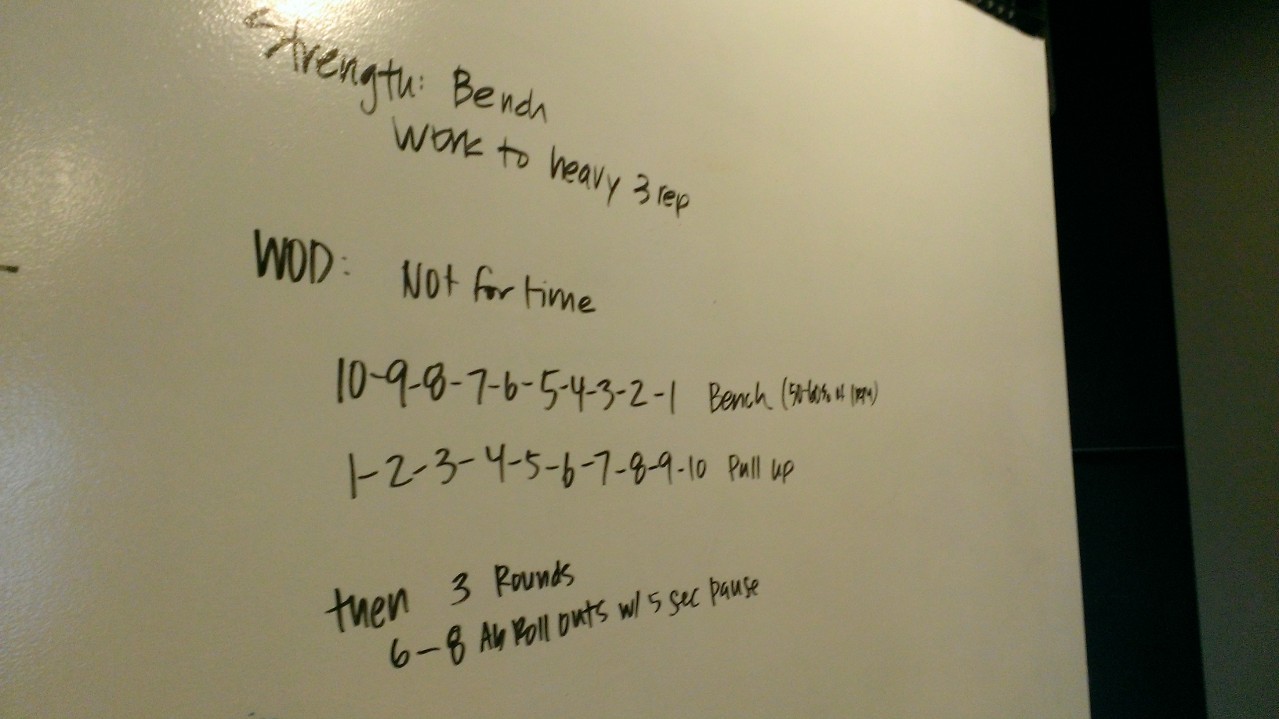 Strength: Bench
Work to heavy 3 rep
WOD: Not for time
10-9-8-7-6-5-4-3-2-1 Bench (50-60% of 1rpm)
1-2-3-4-5-6-7-8-9-10 Pull up
then 3 Rounds
6-8 Ab Roll outs w/ 5 sec pause